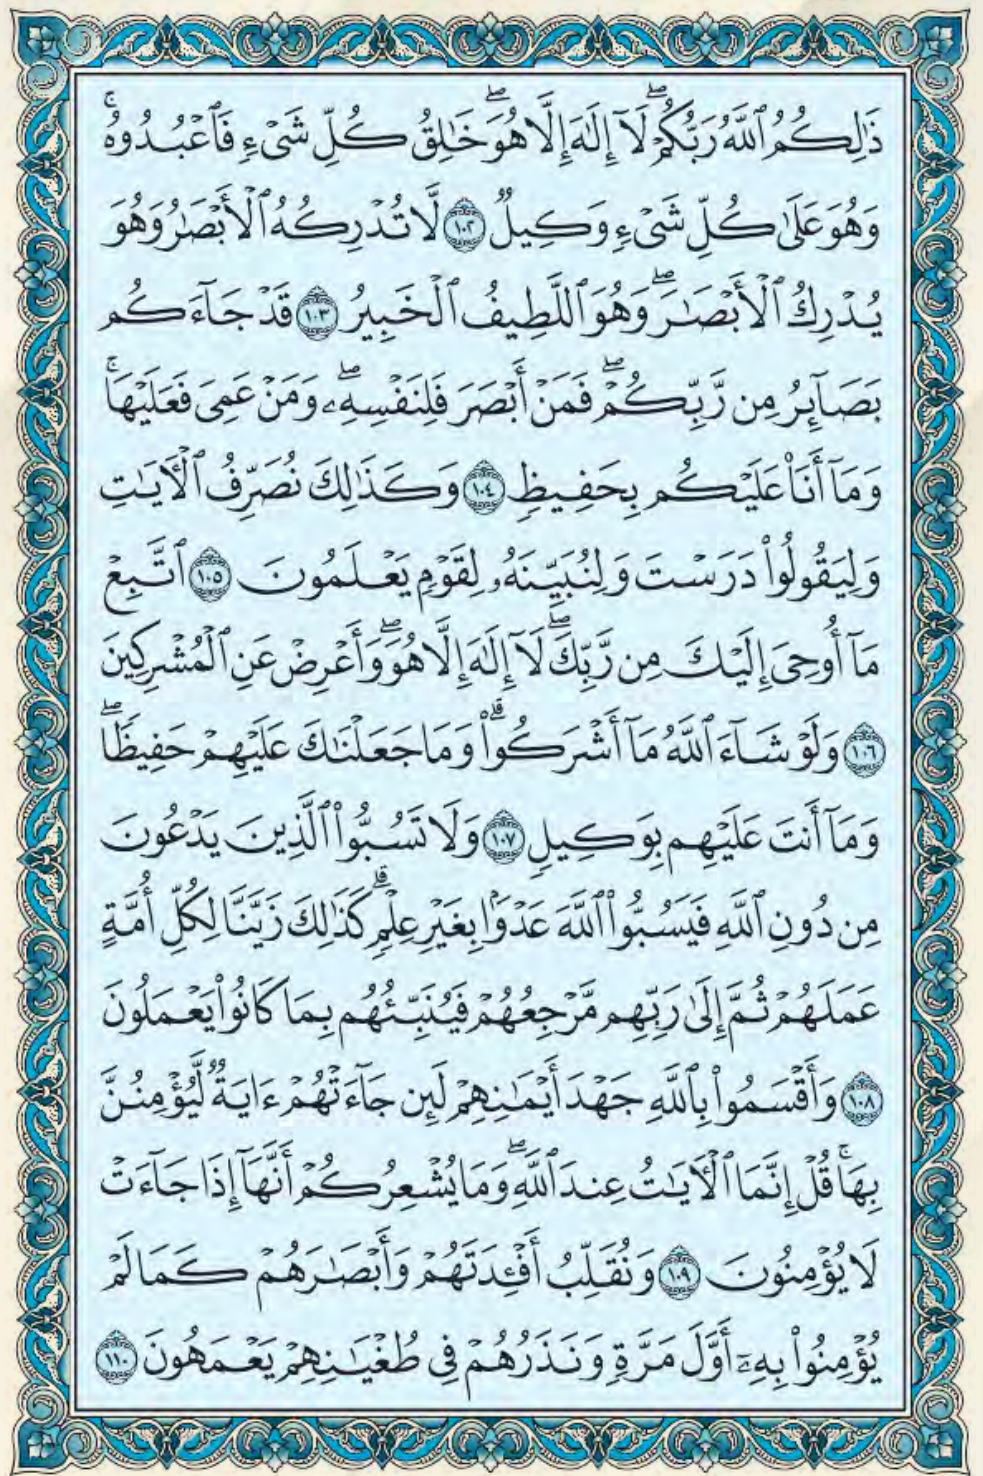 ذَٰلِكُمُ ٱللَّهُ رَبُّكُمْۖ لَآ إِلَٰهَ إِلَّا هُوَۖ خَٰلِقُ كُلِّ شَىْءٍ فَٱعْبُدُوهُۚ
وَهُوَ عَلَىٰ كُلِّ شَىْءٍ وَكِيلٌ ١٠٢ لَّا تُدْرِكُهُ ٱلْأَبْصَٰرُ وَهُوَ
يُدْرِكُ ٱلْأَبْصَٰرَۖ وَهُوَ ٱللَّطِيفُ ٱلْخَبِيرُ ١٠٣ قَدْ جَآءَكُم
بَصَآئِرُ مِن رَّبِّكُمْۖ فَمَنْ أَبْصَرَ فَلِنَفْسِهِۦۖ وَمَنْ عَمِىَ فَعَلَيْهَاۚ
وَمَآ أَنَا۠ عَلَيْكُم بِحَفِيظٍ ١٠٤ وَكَذَٰلِكَ نُصَرِّفُ ٱلْءَايَٰتِ
وَلِيَقُولُوا۟ دَرَسْتَ وَلِنُبَيِّنَهُۥ لِقَوْمٍ يَعْلَمُونَ ١٠٥ ٱتَّبِعْ
مَآ أُوحِىَ إِلَيْكَ مِن رَّبِّكَۖ لَآ إِلَٰهَ إِلَّا هُوَۖ وَأَعْرِضْ عَنِ ٱلْمُشْرِكِينَ
١٠٦ وَلَوْ شَآءَ ٱللَّهُ مَآ أَشْرَكُوا۟ۗ وَمَا جَعَلْنَٰكَ عَلَيْهِمْ حَفِيظًاۖ
وَمَآ أَنتَ عَلَيْهِم بِوَكِيلٍ ١٠٧ وَلَا تَسُبُّوا۟ ٱلَّذِينَ يَدْعُونَ
مِن دُونِ ٱللَّهِ فَيَسُبُّوا۟ ٱللَّهَ عَدْوًۢا بِغَيْرِ عِلْمٍۗ كَذَٰلِكَ زَيَّنَّا لِكُلِّ أُمَّةٍ
عَمَلَهُمْ ثُمَّ إِلَىٰ رَبِّهِم مَّرْجِعُهُمْ فَيُنَبِّئُهُم بِمَا كَانُوا۟ يَعْمَلُونَ
١٠٨ وَأَقْسَمُوا۟ بِٱللَّهِ جَهْدَ أَيْمَٰنِهِمْ لَئِن جَآءَتْهُمْ ءَايَةٌ لَّيُؤْمِنُنَّ
بِهَاۚ قُلْ إِنَّمَا ٱلْءَايَٰتُ عِندَ ٱللَّهِۖ وَمَا يُشْعِرُكُمْ أَنَّهَآ إِذَا جَآءَتْ
لَا يُؤْمِنُونَ ١٠٩ وَنُقَلِّبُ أَفْـِٔدَتَهُمْ وَأَبْصَٰرَهُمْ كَمَا لَمْ
يُؤْمِنُوا۟ بِهِۦٓ أَوَّلَ مَرَّةٍ وَنَذَرُهُمْ فِى طُغْيَٰنِهِمْ يَعْمَهُونَ ١١٠